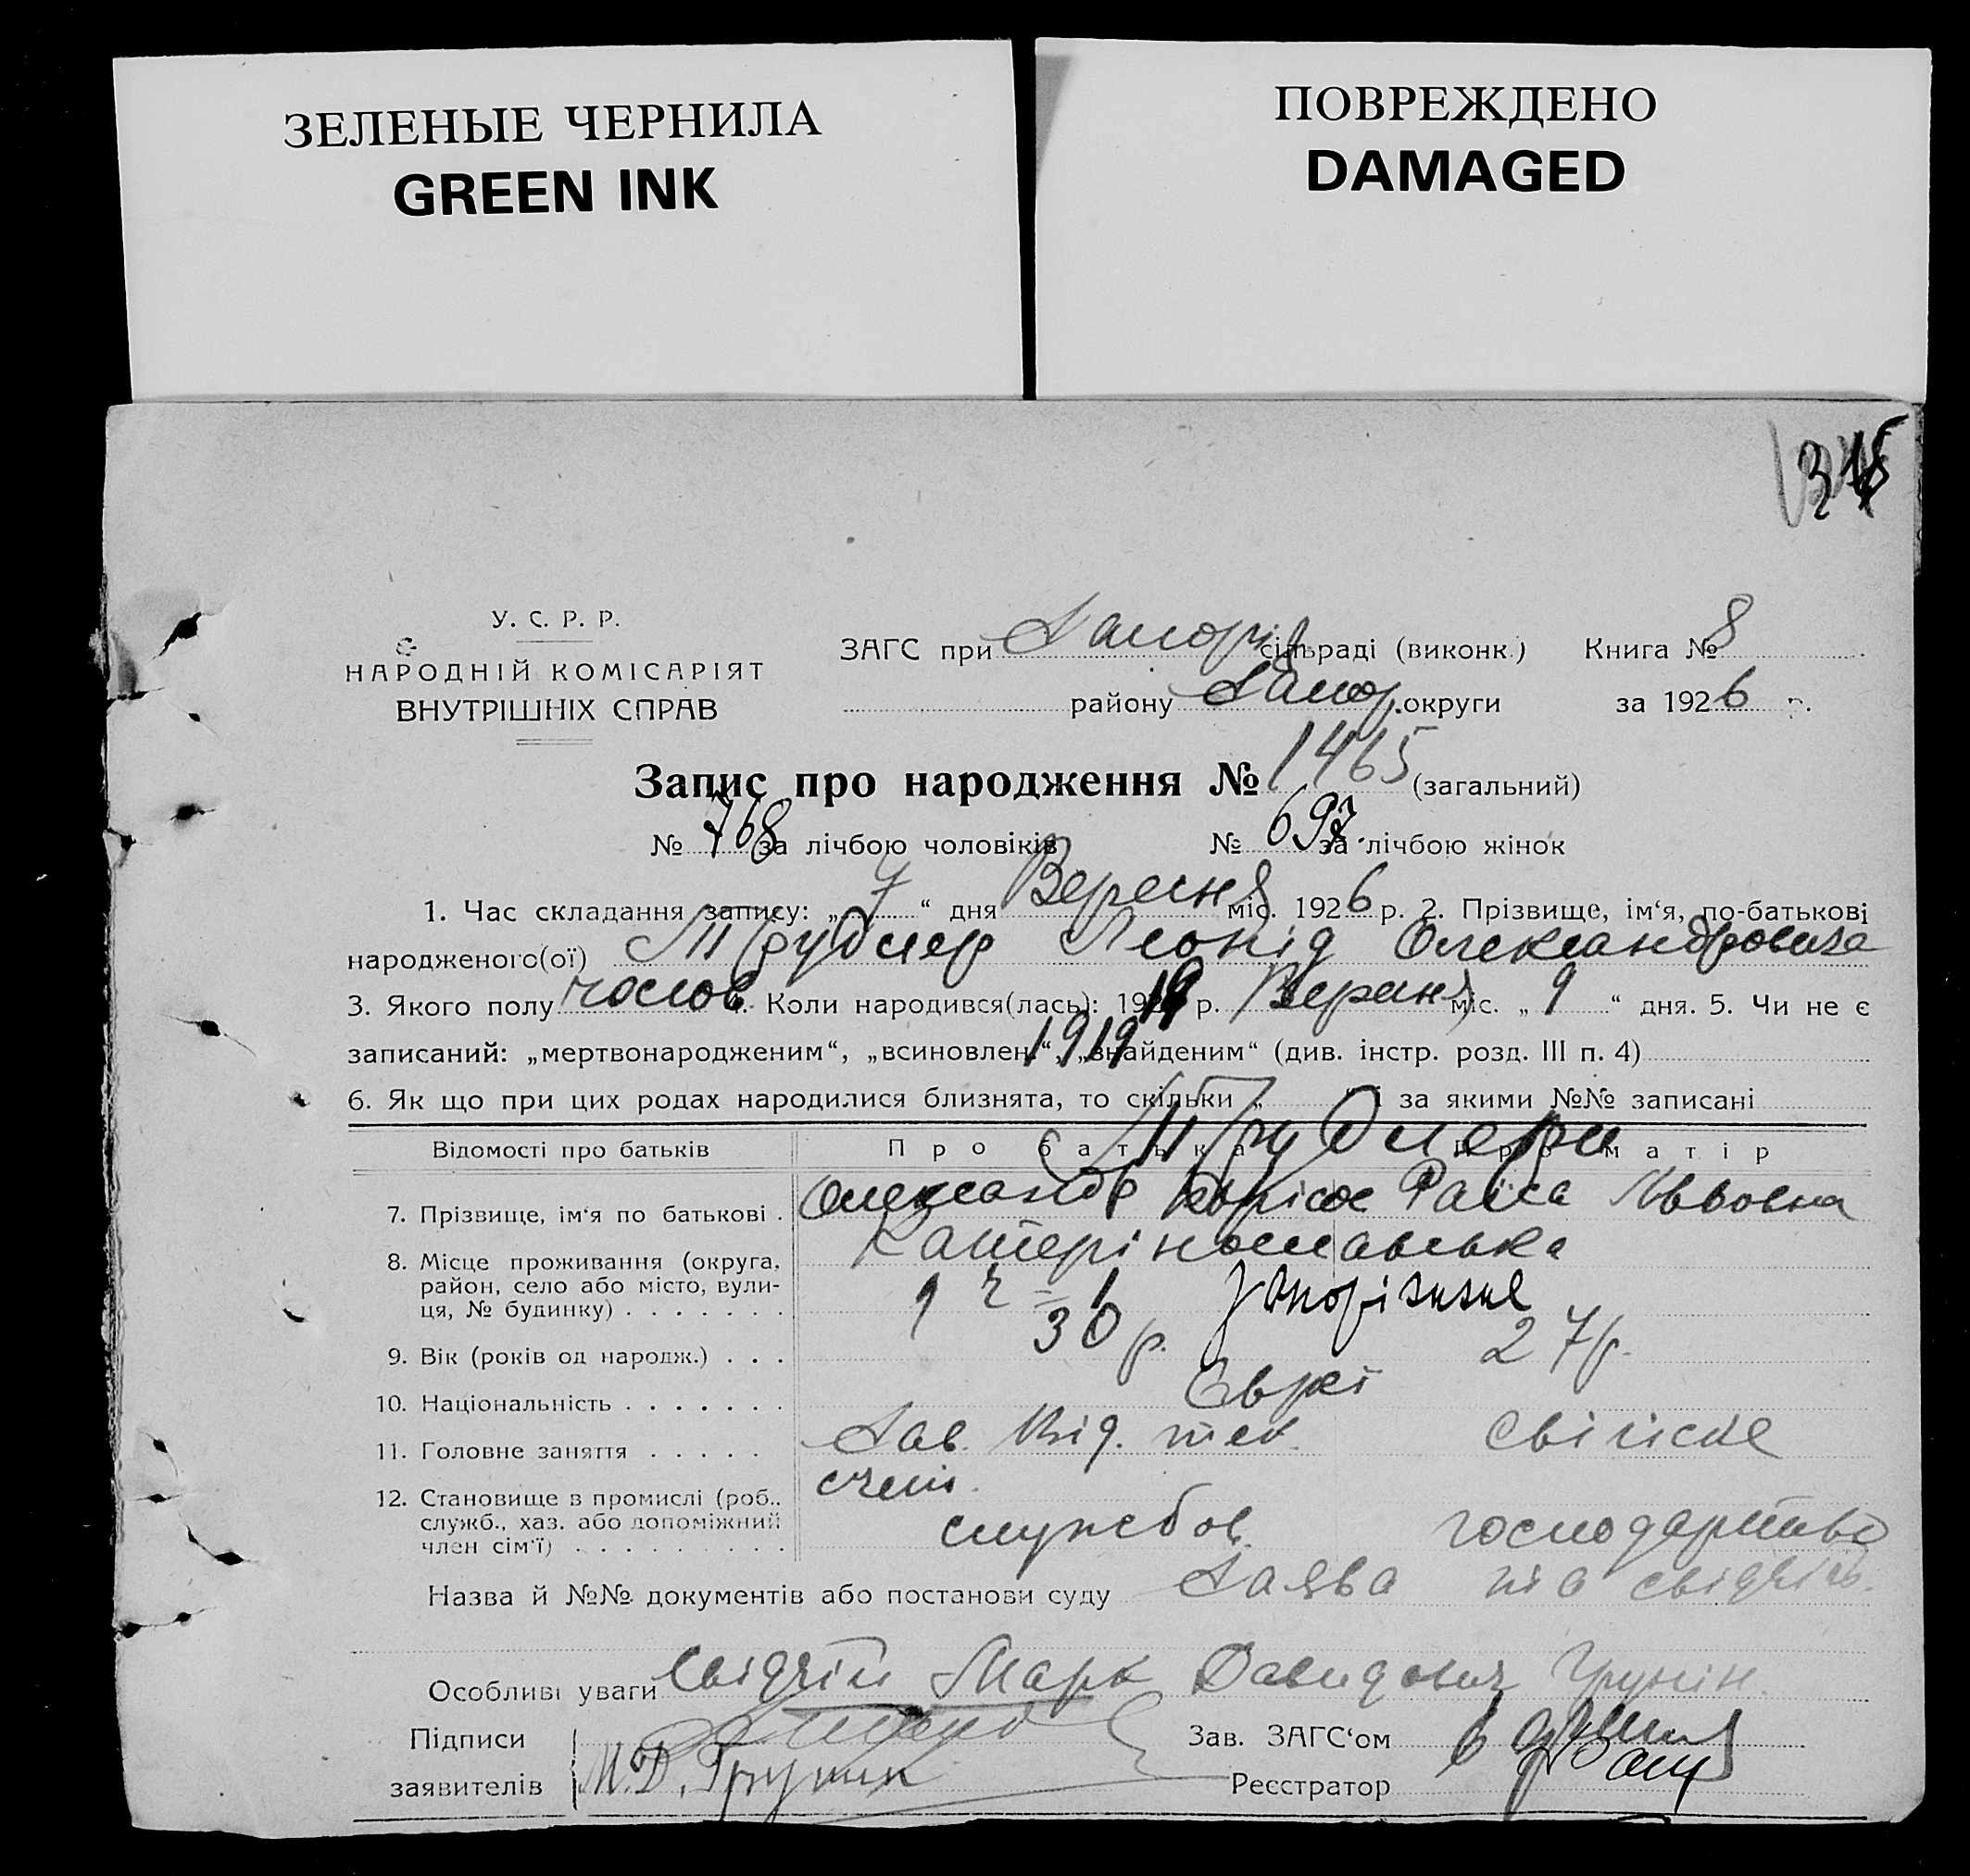 ЗЕЛЕНЫЕ ЧЕРНИЛА
GREEN INK
ПОВРЕЖДЕНО
DAMAGED
У. С. Р. Р.
НАРОДНІЙ КОМІСАРІЯТ
ВНУТРІШНІХ СПРАВ
ЗАГС при Запоріз сільраді (виконк.) Книга № 8
району Запор. округи за 1926 р.
Запис про народження № 1465 (загальний)
№ 768 за лічбою чоловіків № 697 за лічбою жінок
1. Час складання запису: „7“ дня Вересня міс. 1926 р. 2. Прізвище, ім‘я, по-батькові
народженого(ої) Леонід Олександровича
3. Якого полу чолов. Коли народився(лась): 1919 р. міс. „9“ дня. 5. Чи не є
записаний: „мертвонародженим“, „всиновлен.“, „знайденим“ (див. інстр. розд. III п. 4)
1919
6. Як що при цих родах народилися близнята, то скільки „ “ і за якими №№ записані
Відомості про батьків Про батька Про матір
7. Прізвище, ім‘я по батькові . Олександр Борісов Раїса Львовна
8. Місце проживання (округа,
район, село або місто, вули-
ця, № будинку) . . . . . . .
Катерінославська
9. Вік (років од народж.) . . . 30 р. 27 р.
10. Національність . . . . . . . Євреї
11. Головне заняття . . . . . Зав. Від.
12. Становище в промислі (роб.,
служб., хаз. або допоміжний
член сім‘ї) . . . . . . . . .
службов. господарство
Назва й №№ документів або постанови суду Заява
Особливі уваги Марк Давидович Грунін.
Підписи
заявителів М. Д. Грунин
Зав. ЗАГС‘ом
Реєстратор